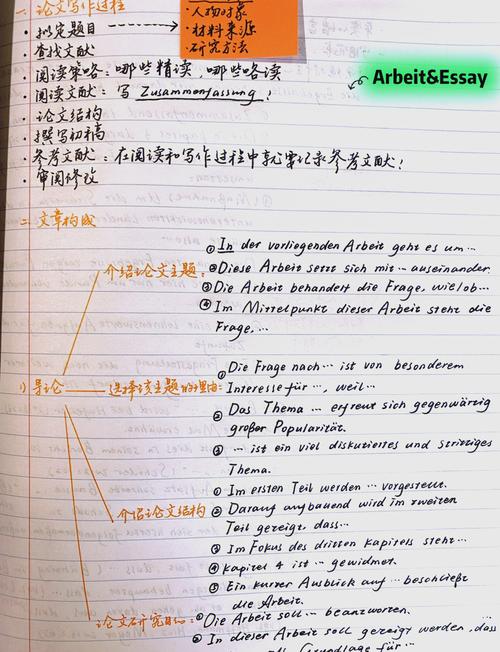 一. 论文写作过程
· 人物对象
· 材料来源
· 研究方法
· 拟定题目
· 查找文献
· 阅读策略：哪些精读，哪些略读
· 阅读文献：写 Zusammenfassung！
Arbeit&Essay
· 论文结构
· 撰写初稿
· 参考文献：在阅读和写作过程中就要记录参考文献！
· 审阅修改
二. 文章构成
1) 导论
介绍论文主题：
① In der vorliegenden Arbeit geht es um…
② Diese Arbeit setzt sich mit … auseinander.
③ Die Arbeit behandert die Frage, wie/ob…
④ Im Mittelpunkt dieser Arbeit steht die
Frage, …
选择该主题的理由：
① Die Frage nach … ist von besonderem
Interesse für …, weil…
② Das Thema … erfreut sich gegenwärtig
großer Popularität.
③ … ist ein viel diskutiertes und strittiges
Thema.
介绍论文结构
① Im ersten Teil werden … vorgestellt.
② Darauf aufbauend wird im zweiten
Teil gezeigt, dass…
③ Im Fokus des dritten Kapitels steht…
④ Kapitel 4 ist … gewidmet.
⑤ Ein kurzer Ausblick auf … beschließt
die Arbeit.
论文研究目的：
① Die Arbeit soll … beantworten.
② In dieser Arbeit soll gezeigt werden, dass
Grundlage für …